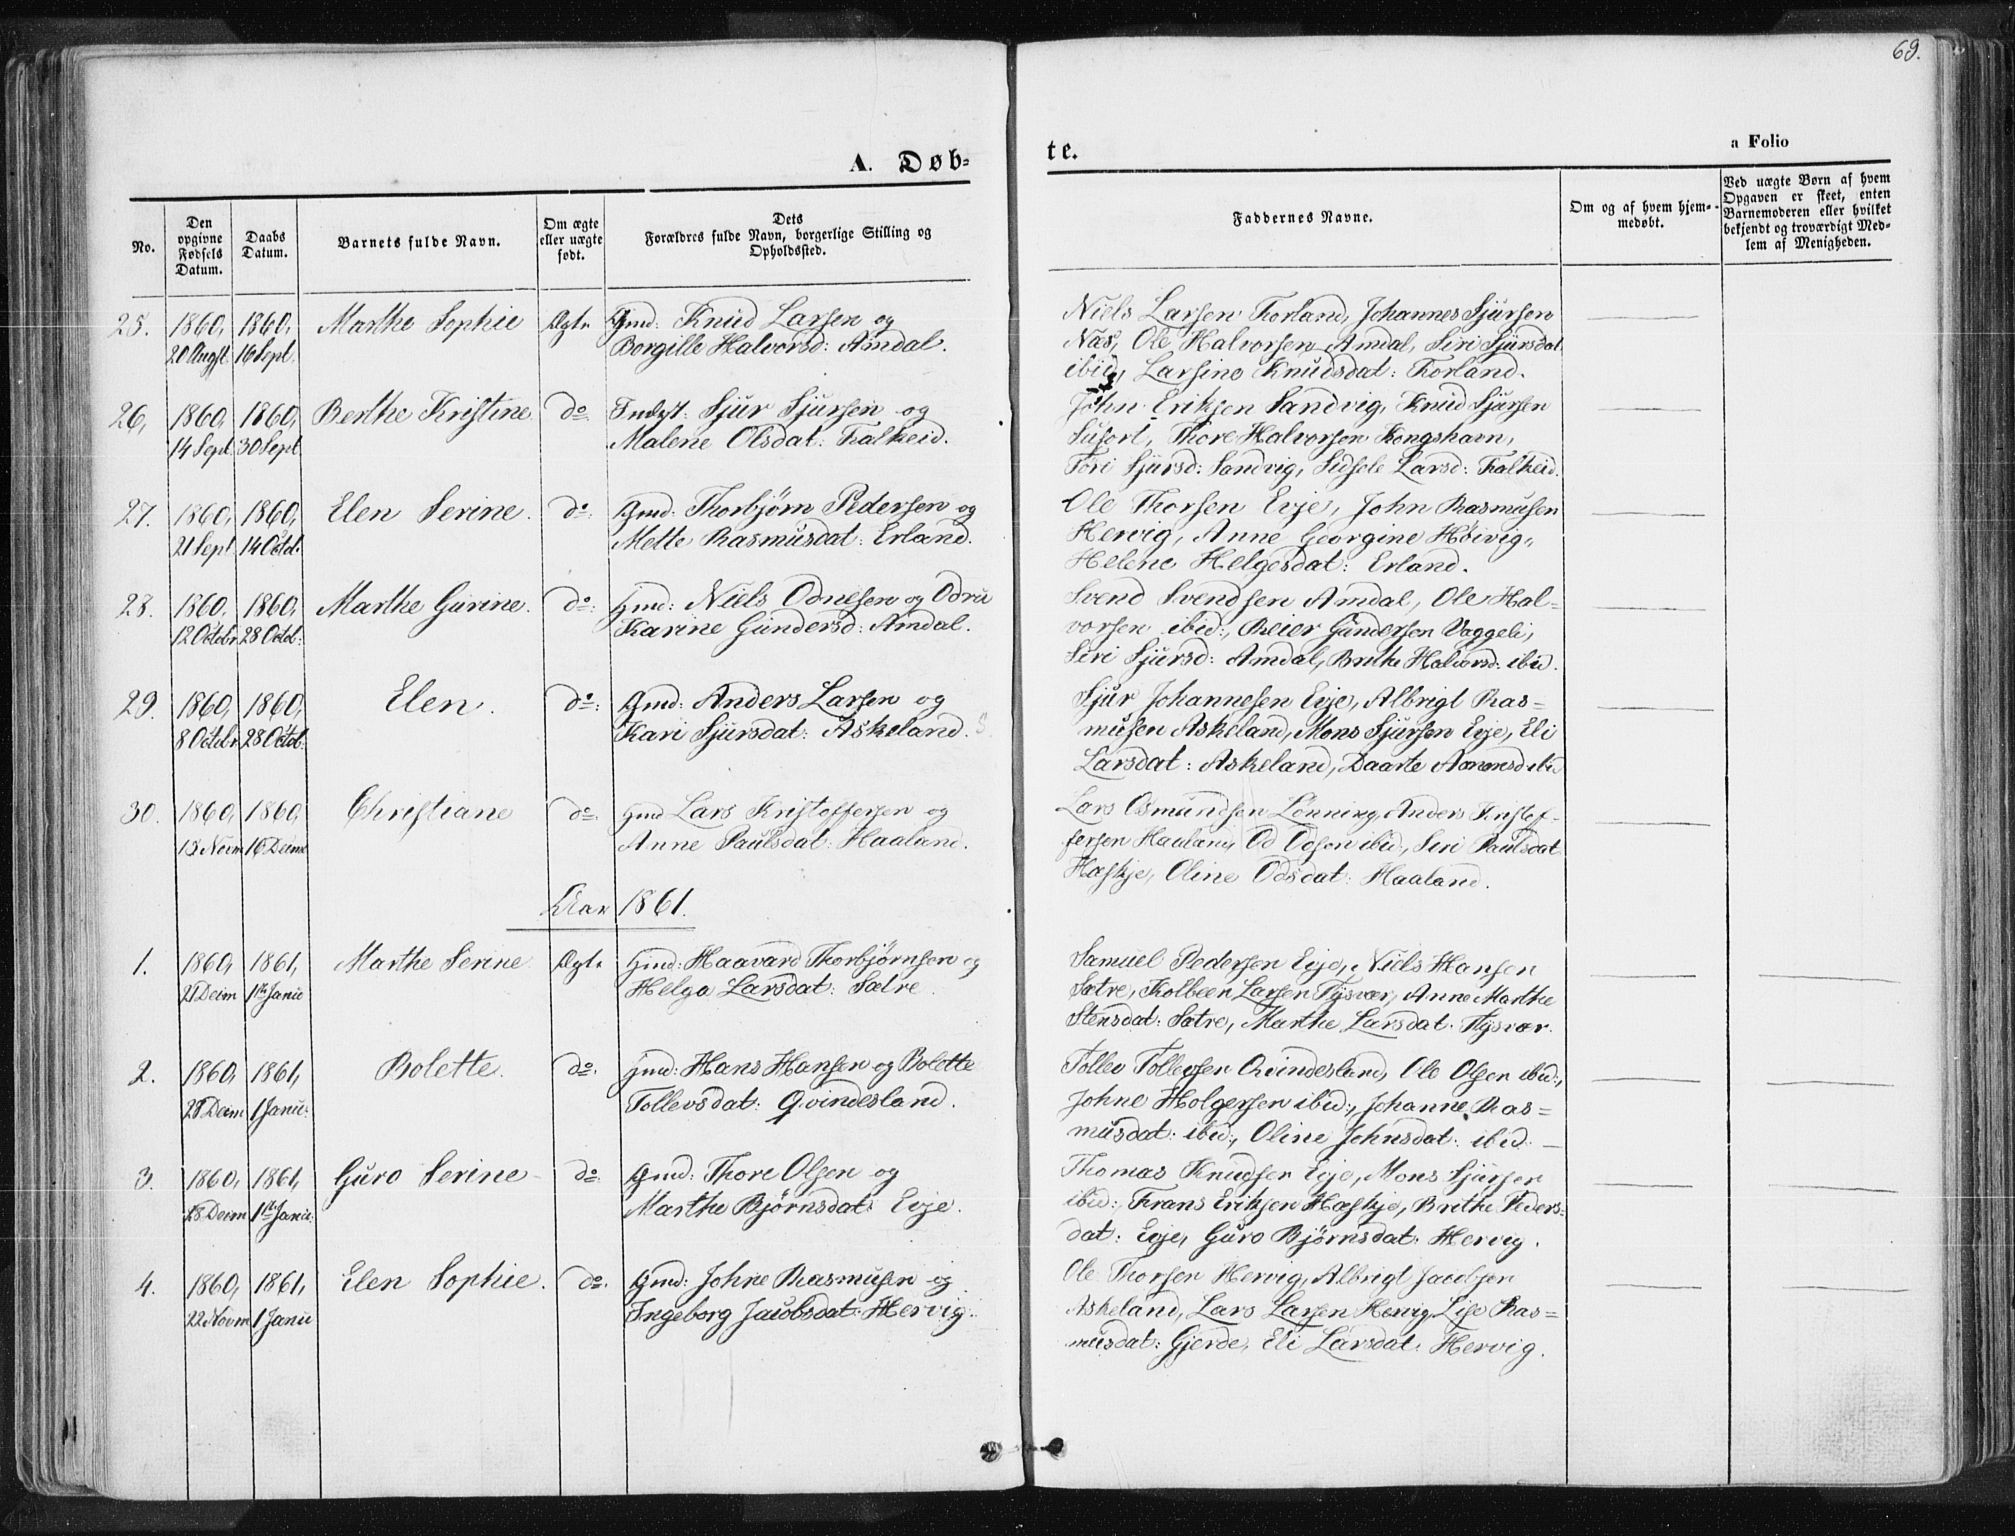 69.
A. Døb-
te.
a Folio
No.
Den opgivne Fødsels Datum.
Daabs Datum.
Barnets fulde Navn.
Om ægte eller uægte født.
Dets Forældres fulde Navn, borgerlige Stilling og Opholdssted.
Faddernes Navne.
Om og af hvem hjemmedøbt.
Ved uægte Børn af hvem Opgaven er skeet, enten Barnemoderen eller hvilket bekjendt og troværdigt Medlem af Menigheden.
25. 1860, 1860, Marthe Sophie Ægte Gmd: Knud Larsen og
20 Augst. 16 Sept. Borgille Halvorsd: Amdal.
Niels Larsen Forland, Johannes Sjursen
Næs, Ole Halvorsen Amdal, Siri Sjursdat
ibid, Larsine Knudsdat: Forland.
26, 1860, 1860, Berthe Kristine do Indst: Sjur Sjursen og
14 Sept 30 Sept Malene Olsdat: Falkeid.
John Eriksen Sandvig, Knud Sjursen
Susort, Thore Halvorsen Kongshavn,
Tori Sjursd: Sandvig, Sidsele Larsd: Falkeid.
27. 1860, 1860, Elen Serine. do Gmd: Thorbjørn Pedersen og
21 Sept 14 Octob. Mette Rasmusdat: Erland.
Ole Thorsen Evje, John Rasmusen
Hervig, Anne Georgine Høivig,
Helene Helgesdat: Erland.
28. 1860, 1860, Marthe Gurine. do: Hmd: Niels Odnesen og Odru
12 Octobr 28 Octob: Karine Gundersd: Amdal.
Svend Svendsen Amdal, Ole Hal-
vorsen ibid:, Reier Gundersen Vaggeli,
Siri Sjursd: Amdal, Brithe Halvorsd: ibid.
29. 1860, 1860, Elen. do: Gmd: Anders Larsen og
8 Octobr 28 Octob. Kari Sjursdat: Askeland.
Sjur Johannesen Evje, Albrigt Ras-
musen Askeland, Mons Sjursen Evje, Eli
Larsdat: Askeland, Daarte ibid
30. 1860, 1860, Christiane do: Hmd Lars Kristoffersen og
13 Novm 16 Decmr Anne Paulsdal: Haaland.
Lars Osmundsen Lønning, Anders Kristof-
fersen Haaland, Od Odsen ibid, Siri Paulsdat
Hæskje, Oline Odsdat: Haaland.
Aar 1861.
1. 1860, 1861, Marthe Serine. Ægte Hmd: Haavard Thorbjørnsen og
21 Decm 1ste Janu Helga Larsdat: Sætre.
Samuel Pedersen Evje, Niels Hansen
Sætre, Kolbeen Larsen Tysvær, Anne Marthe
Stensdat: Sætre, Marthe Larsdat: Tysvær.
2. 1860, 1861, Bolette. do. Hmd: Hans Hansen og Bolette
28 Decm 1 Janu: Tollevsdat: Qvindesland.
Tollev Tollevsen Qvindesland, Ole Olsen ibid:,
Johne Holgersen ibid:, Johanne Ras-
musdat: ibid:, Oline Johnsdat: ibid.
3. 1860, 1861, Guro Serine do: Gmd: Thore Olsen og
28 Decm 1ste Janu: Marthe Bjørnsdat: Evje.
Thomas Knudsen Evje, Mons Sjursen
ibid:, Frans Eriksen Hæskje, Brithe Peders-
dat: Evje, Guro Bjørnsdat: Hervig.
4. 1860, 1861, Elen Sophie. do. Gmd: Johne Rasmusen og
22 Novm 1 Janu Ingeborg Jacobsdat: Hervig.
Ole Thorsen Hervig, Albrigt Jacobsen
Askeland, Lars Larsen Hervig, Lise Ras-
musdat: Gjerde, Eli Larsdat: Hervig.